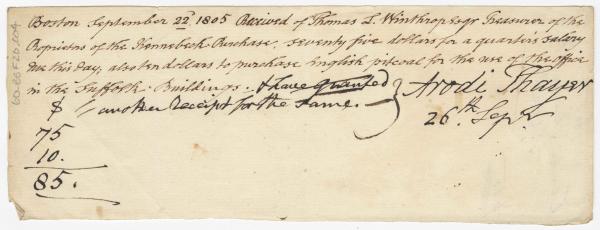 Boston September 22d 1805 Received of Thomas L. Winthrop esqr Treasurer of the
Proprietors of the Kennebeck Purchase, seventy five dollars for a quarter's salary
due this day, also ten dollars to purchase English pitcoal for the use of the office
in the Suffolk Buildings. & have granted
another receipt for the same.
Arodi Thayer
26th Sepr
$
75
10.
85.